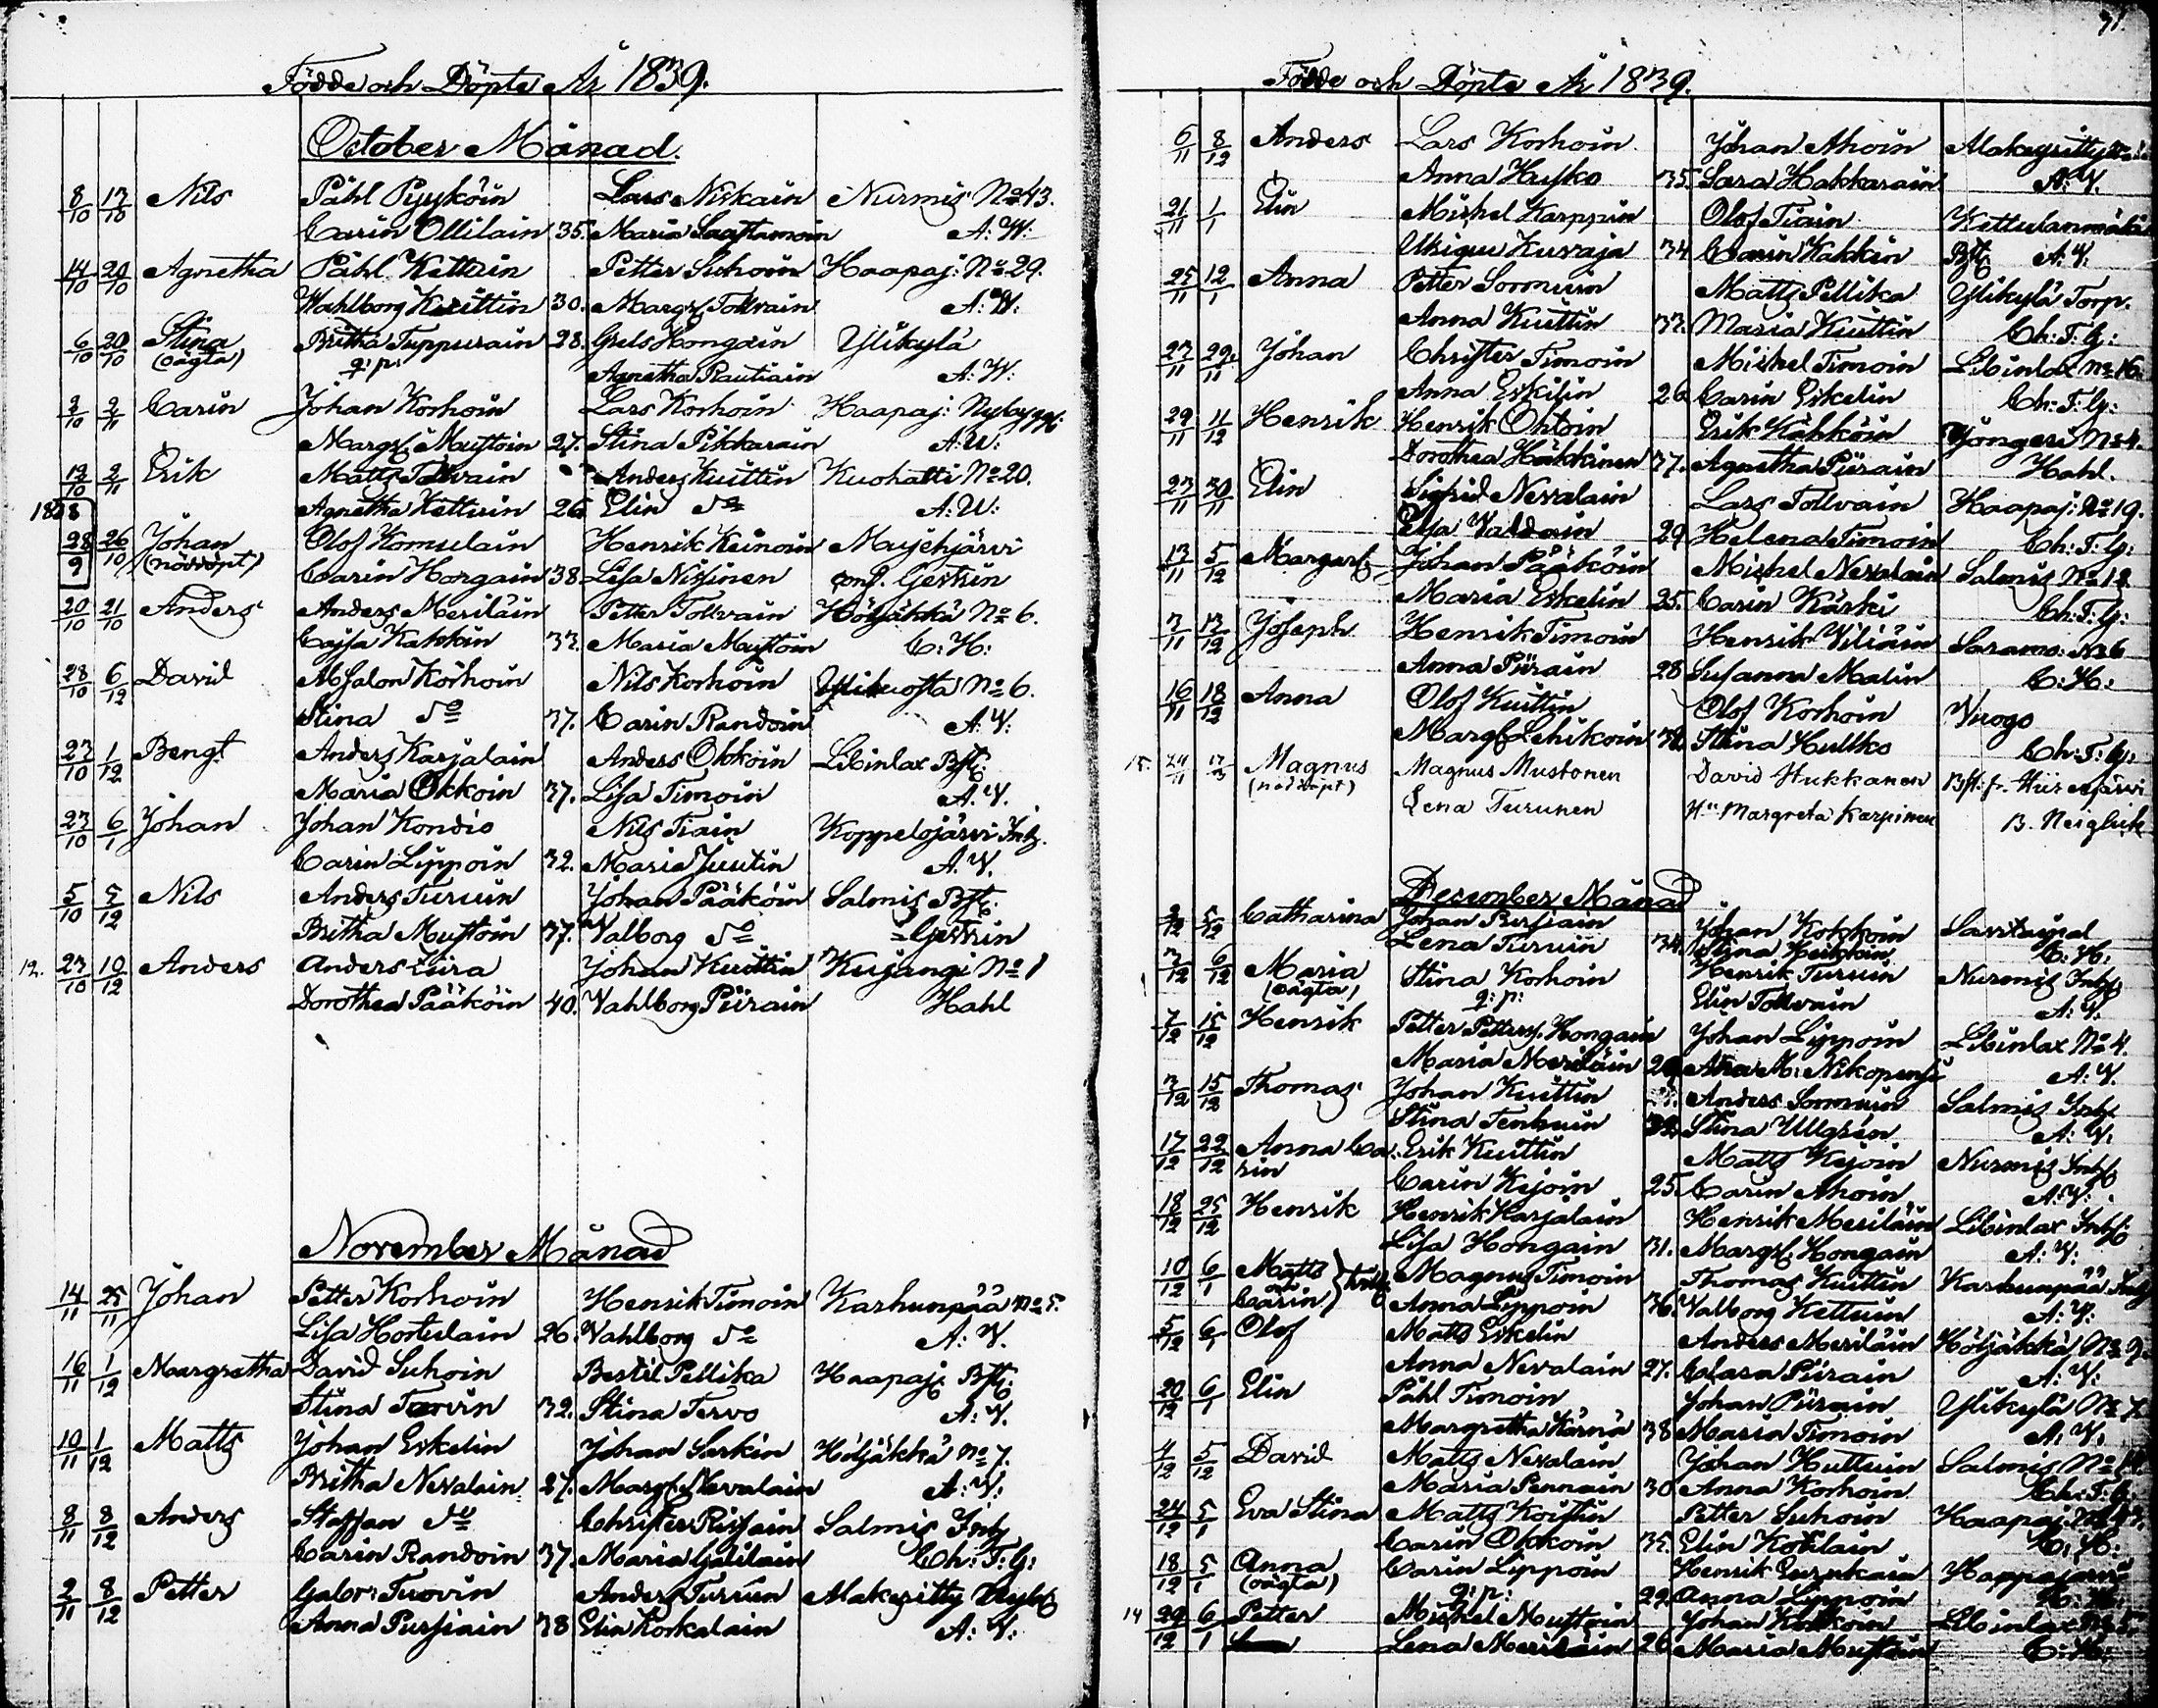 Födde och Döpte År 1839.
October Månad.
8/10 13/10 Nils Påhl Pyyköin Lars Niskain Nurmis No 43.
Carin Ollilain 35. Maria Saastamoin A: W:
14/10 20/10 Agnetha Påhl Kettuin Petter Suhoin Haapaj: No 29.
Wahlborg Kuittin 30. Margt Tolvain A: W:
6/10 20/10 Stina Britha Tuppurain 28. Grels Hongain Ylikylä
(oägta) q: p: Agnetha Rautiain A: W:
2/10 2/11 Carin Johan Korhoin Lars Korhoin Haapaj: Nybygge
Margt Mustoin 27. Stina Pikkarain A: W:
12/10 2/11 Erik Matts Tolvain Anders Kuittin Kuohatti No 20.
1838 Agnetha Kettuin 26 Elin do A: W:
28/9 26/10 Johan Olof Komulain Henrik Keinoin Mujejärvi
(nöddöpt) Carin Horgain 38. Lisa Nissinen conf. Gestrin
20/10 21/10 Anders Anders Meriläin Petter Tolvain Höljäkkä No 6.
Cajsa Kakkin 33. Maria Mustoin C: H:
28/10 6/12 David Absalon Korhoin Nils Korhoin No 6.
Stina do 37. Carin Randoin A: V:
23/10 1/12 Bengt Anders Karjalain Anders Okkoin Libinlax Bst:
Maria Okkoin 37. Lisa Timoin A. V.
23/10 6/1 Johan Johan Kondio Nils Tiain Koppelojärvi Inh.
Carin Lippoin 32. Maria Juutin A. V.
5/10 5/12 Nils Anders Turuin Johan Pääköin Salmis Bst:
Britha Mustoin 37. Valborg do Gestrin
12. 23/10 10/12 Anders Anders Zura Johan Kuittin Kujangi No 1
Dorothea Pääköin 40. Vahlborg Piirain Hahl
November Månad
14/11 25/11 Johan Petter Korhoin Henrik Timoin Karhunpää No 5.
Lisa Hortulain 26. Wahlborg do A: V.
16/11 1/12 Margretha David Suhoin Bertil Pellika Haapaj: Bst:
Stina Tervin 32. Stina Tervo A: V.
10/11 1/12 Matts Johan Eskelin Johan Serkin Höljäkkä No 7.
Britha Nevalain 27. Margt Nevalain A: V:
8/11 8/12 Anders Staffan do Christer Rissain Salmis Inh
Carin Randoin 37. Maria Gäliläin Ch: T: G:
2/11 8/12 Petter Gabr: Tuovin Anders Turuin Makeyritty Nyb
Anna Pursiain 38 Elin Korkalain A: V:
71.
Födde och Döpte År 1839.
6/11 8/12 Anders Lars Korhoin Johan Ahoin Makeyritty
Anna Husko 35. Sara Hakkarain A: V.
21/11 1/1 Elin Michel Karppin Olof Tiain Kettulanmäki
Kuvaja 34 Carin Kakkin Bst: A: V:
25/11 12/1 Anna Petter Sormuin Matts Pellika Ylikylä Torp.
Anna Kuittin 33. Maria Kuittin Ch: T: G:
23/11 29/11 Johan Christer Timoin Michel Timoin Libinlax No 16.
Anna Eskilin 26. Carin Eskelin Ch: T: G:
29/11 11/12 Henrik Henrik Ohtoin Erik Kähköin Jongeri No 4.
Dorothea Häkkinen 37. Agnetha Piirain Hahl.
23/11 30/11 Elin Sigfrid Nevalain Lars Tolvain Haapaj: No 19.
Elsa Valdain 29 Helena Timoin Ch: T: G:
13/11 5/12 Margart Johan Pääköin Michel Nevalain Salmis No 12
Maria Eskelin 25. Carin Kärki Ch: T: G:
3/11 13/12 Joseph Henrik Timoin Henrik Viliäin Saramo: No 6
Anna Piirain 28 Susanna Malin C: H:
16/11 18/12 Anna Olof Kuittin Olof Korhoin Vuogo
Margt Lehikoin Stina Hultko Ch: T: G:
15. 24/11 Magnus Magnus Mustonen David Hukkanen Bst. fr. Hiirenjärvi
(nöddöpt) Lena Turunen Hu Margreta Karpinen B. Neiglick
December Månad
5/12 Catharina Johan Pursiain Johan Kokkoin
Lena Turuin 34. Stina Heikkin C: H:
3/12 6/12 Maria Stina Korhoin Henrik Turuin Nurmis Inh:
(oägta) q: p: Elin Tolvain A: V:
7/12 15/12 Henrik Petter Petters. Hongain Johan Lippoin Libinlax No 4.
Maria Meriläin A: V.
3/12 15/12 Thomas Johan Kuittin Anders Sormuin Salmis Inh:
Stina Tenhuin Stina Ullgrén A: V:
17/12 22/12 Anna Ca- Erik Kuittin Matts Kejoin Nurmis Inh:
rin Carin Kejoin 25. Carin Ahoin A: V:
18/12 25/12 Henrik Henrik Karjalain Henrik Meriläin Libinlax Inh:
Lisa Hongain 31. Margt Hongain A: V:
10/12 6/1 Matts Magnus Timoin Thomas Kuittin Karhunpää Inh
Carin Anna Lippoin 36. Valborg Kettuin A: V:
5/12 6/1 Olof Matts Eskelin Anders Meriläin Höljäkkä No 9.
Anna Nevalain 27. Clara Piirain A: V:
20/12 6/1 Elin Påhl Timoin Johan Piirain Ylikylä No 7.
Margretha Kärnä 38 Maria Timoin A: V:
4/12 5/12 David Matts Nevalain Johan Huttuin Salmis No
Maria Pennain 30 Anna Korhoin Ch: T: G:
24/12 5/1 Eva Stina Matts Koistin Petter Suhoin Haapaj:
Carin Okkoin 35. Elin Kotilain C: H:
18/12 5/1 Anna Carin Lippoin Henrik
(oägta) q: p: 22 Anna Lippoin
14 29/12 6/1 Petter Michel Mustoin Johan Kokkoin Libinlax
Lena Meriläin 26 Maria Mustoin C: H: